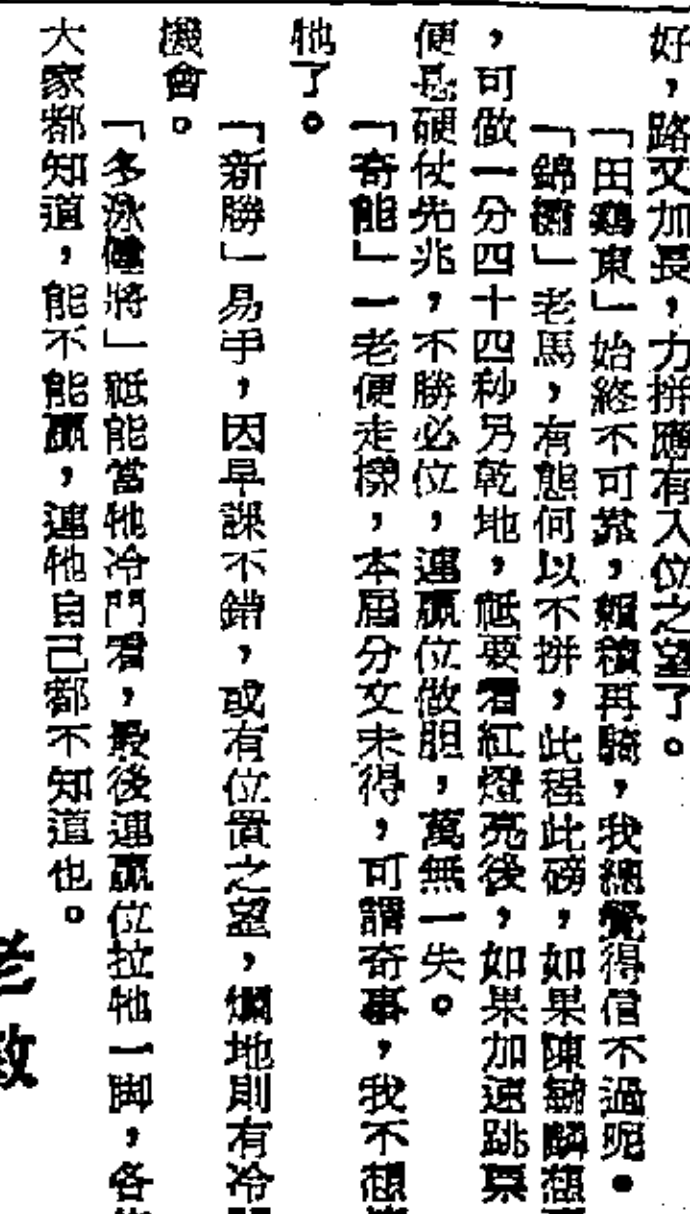 好，路又加長，力拼應有入位之望了。
「田鷄東」始終不可靠，賴積再騎，我總覺得信不過呢。
「錦鏽」老馬，有態何以不拼，此程此磅，如果陳毓麟想
，可做一分四十四秒另乾地，祗要看紅燈亮後，如果加速跳票
便是硬仗先兆，不勝必位，連贏位做胆，萬無一失。
「奇能」一老便走樣，本屆分文未得，可謂奇事，我不想
牠了。
「新勝」易手，因早課不錯，或有位置之望，爛地則有冷
機會。
「多泳健將」祗能當牠冷門看，最後連贏位拉牠一脚，各
大家都知道，能不能贏，連牠自己都不知道也。
老